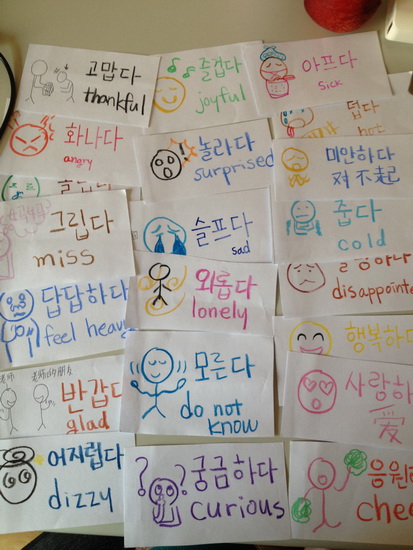 고맙다
thankful
즐겁다
joyful
아프다
sick
화나다
angry
놀라다
surprised
덥다
hot
미안하다
对不起
그립다
miss
슬프다
sad
춥다
cold
답답하다
feel heavy
외롭다
lonely
disappointe
행복하다
老师的朋友
반갑다
glad
모른다
do not
know
사랑하
爱
어지럽다
dizzy
궁금하다
curious
응원
chee